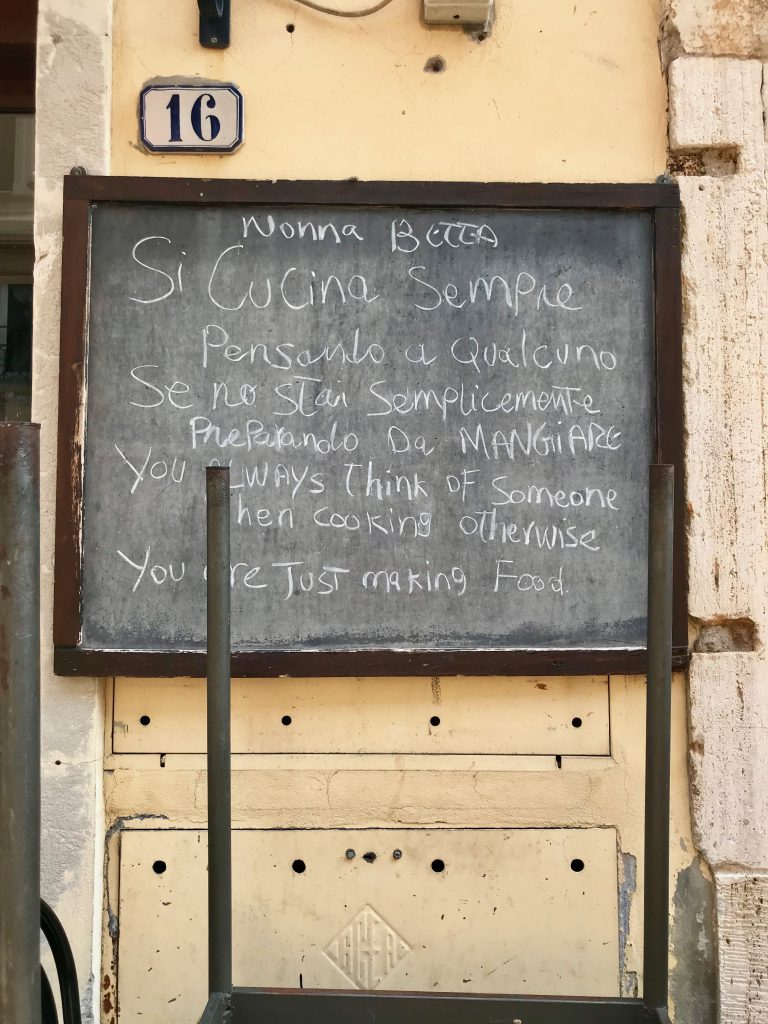 16
Nonna BETTA
Si Cucina Sempre
Pensando a Qualcuno
Se no stai semplicemente
Preparando Da MANGIARE
You ALWAYS think OF someone
hen cooking otherwise
You are Just making Food.